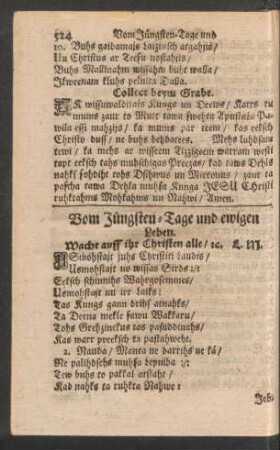 524 Vom Jüngsten-Tage und
10. Buhs gaidamajs Laizinsch atgahjis/
Un Christus ar Teesu nostahjis/
Buhs Mallituhm wissahm buht walla/
Ikweenam kluhs pelnita Dalla.
Collect beym Grabe.
wissuwalditais Kungs un Deews/ Katrs tu
mums zaur to Mutt tawa swehta Apustula Pa-
wila essi mahzijs/ ka mums par teem/ kas eeksch
Christo duss/ ne buhs behdatees. Mehs luhdsam
tew/ ka mehs ar wisseem Tizzigeem warram westi
tapt eeksch tahs muhschigas Preezas/ kad taws Dehls
nahks sohdiht tohs Dsihwus un Mirronus/ zaur ta
pascha tawa Dehla muhsa Kunga JESU Christi
ruhktahms Mohkahms un Nahwi/ Amen.
Vom Jüngsten-Tage und ewigen
Leben.
Wacht auff ihr Christen alle/ 2c. L. M.
juhs Christiti Laudis/
Usmohstajt no wissas Sirds :/:
Eeksch schinnihs Wahrgosemmes/
Usmohstajt nu irr Laiks:
Tas Kungs gann drihs atnahks/
Ta Deena mekle sawu Wakkaru/
Tohs Grehzinekus tas pasuddinahs/
Kas warr preeksch ta pastahweht.
2. Nauda/ Manta ne darrihs ne ká/
Ne palihdsehs muhsa beyniba :/:
Tew buhs to pakkal atstaht/
Kad nahks ta ruhkta Nahwe:
Jeb-